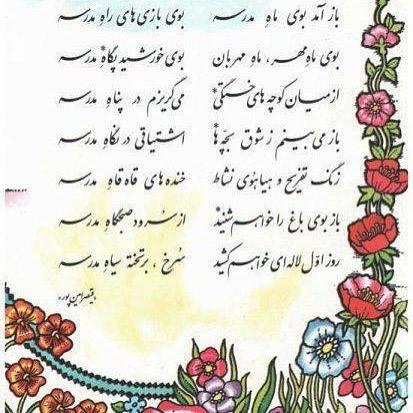 باز آمد بوی ماهِ مدرسه    بوی بازی‌های راهِ مدرسه
بوی ماهِ مهر، ماهِ مهربان    بوی خورشید پگاهِ* مدرسه
از میان کوچه‌های خستگی*    می‌گریزم در پناهِ مدرسه
باز می‌بینم ز شوق بچّه‌ها    اشتیاقی در نگاهِ مدرسه
زنگ تفریح و هیاهوی نشاط    خنده‌های قاه قاهِ مدرسه
باز بوی باغ را خواهم شنید    از سرود صبحگاهِ مدرسه
روز اوّل لاله‌ای خواهم کشید    سُرخ، بر تخته سیاهِ مدرسه
«قیصر امین‌پور»